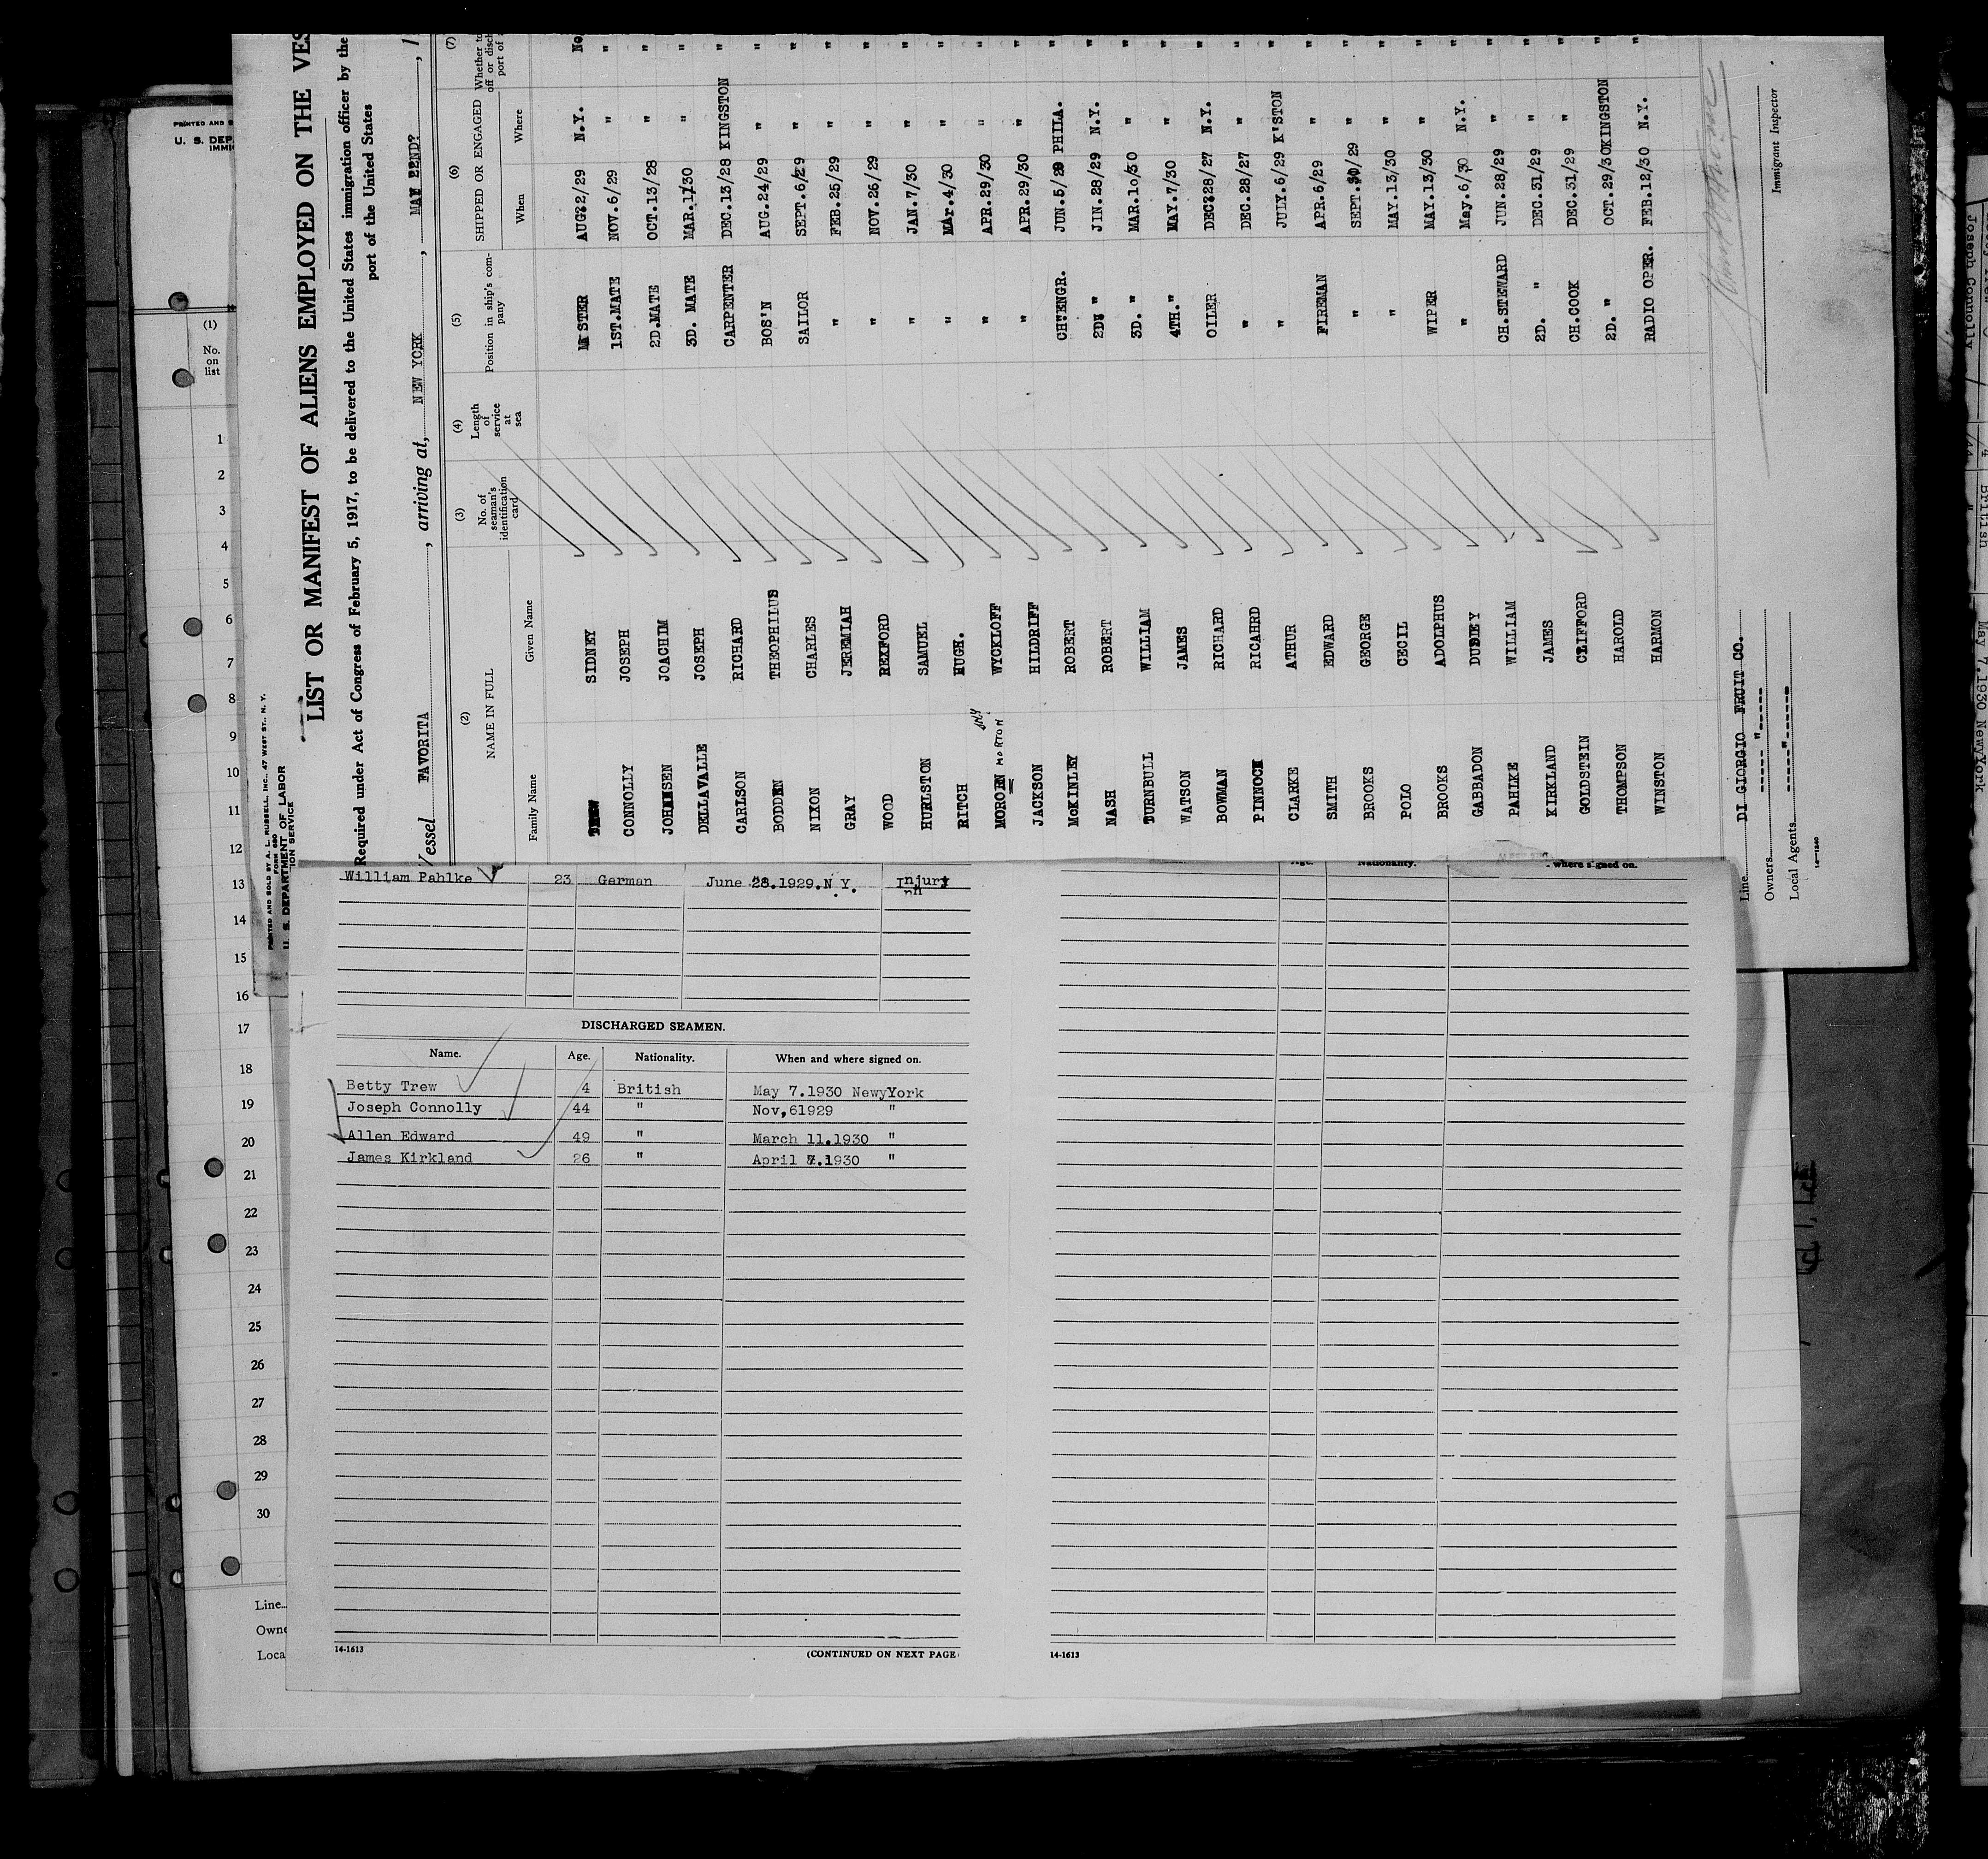 LIST OR MANIFEST OF ALIENS EMPLOYED ON THE VES
Required under Act of Congress of February 5, 1917, to be delivered to the United States immigration officer by the
port of the United States
Vessel FAVORITA, arriving at, NEW YORK, MAY 22ND?, 1
(2) (3) (4) (5) (6) (7)
NAME IN FULL No. of seaman's identification card Length of service at sea Position in ship's company SHIPPED OR ENGAGED Whether to
off or disch
port of
Family Name Given Name When Where
SIDNEY MASTER AUG.2/29 N.Y. No
CONNOLLY JOSEPH 1ST.MATE NOV.6/29 " "
JOHNNSEN JOACHIM 2D.MATE OCT.13/28 " "
DELLAVALLE JOSEPH 3D. MATE MAR.11/30 " "
CARLSON RICHARD CARPENTER DEC.13/28 KINGSTON "
BODDEN THEOPHILUS BOS'N AUG.24/29 " "
NIXON CHARLES SAILOR SEPT.6/29 " "
GRAY JEREMIAH " FEB.25/29 " "
WOOD REXFORD " NOV.26/29 " "
HURLSTON SAMUEL " JAN.7/30 " "
RITCH HUGH. " MAr.4/30 " "
MOROEN MORTON WYCKLOFF " APR.29/30 " "
JACKSON HILDRIFF " APR.29/30 " "
McKINLEY ROBERT CH'ENGR. JUN.5/29 PHILA. "
NASH ROBERT 2D. " JIN.28/29 N.Y. "
TURNBULL WILLIAM 3D. " MAR.10/30 " "
WATSON JAMES 4TH." MAY.7/30 " "
BOWMAN RICHARD OILER DEC.28/27 N.Y. "
PINNOCK RICAHRD " DEC.28/27 " "
CLARKE ATHUR " JULY.6/29 K'STON "
SMITH EDWARD FIREMAN APR.6/29 " "
BROOKS GEORGE " SEPT.30/29 " "
POLO CECIL " MAY.13/30 " "
BROOKS ADOLPHUS WIPER MAY.13/30 " "
GABBADON DUDLEY " May.6/30 N.Y. "
PAHLKE WILLIAM CH.STEWARD JUN.28/29 " "
KIRKLAND JAMES 2D. " DEC.31/29 " "
GOLDSTEIN CLIFFORD CH.COOK DEC.31/29 " "
THOMPSON HAROLD 2D. " OCT.29/30KINGSTON "
WINSTON HARMON RADIO OPER. FEB.12/30 N.Y. "
Line DI GIORGIO FRUIT CO.
Owners ----"-----
Local Agents -----"------
Immigrant Inspector
14-1240
PRINTED AND SOLD BY A. L. RUSSELL, INC., 47 WEST ST., N. Y.
FORM 680
U. S. DEPARTMENT OF LABOR
ION SERVICE
PRINTED AND S
U. S. DEP
IMMIG
(1)
No.
on
list
1
2
3
4
5
6
7
8
9
10
11
12
13
14
15
16
17
18
19
20
21
22
23
24
25
26
27
28
29
30
Line
Owne
Loca
William Pahlke 23 German June 28.1929.N Y. Injury
Nationality. where signed on.
DISCHARGED SEAMEN.
Name. Age. Nationality. When and where signed on.
Betty Trew 4 British May 7.1930 NewyYork
Joseph Connolly 44 " Nov,61929 "
Allen Edward 49 " March 11.1930 "
James Kirkland 26 " April 7.1930 "
14-1613 (CONTINUED ON NEXT PAGE
14-1613
Joseph Connolly
British
May 7.1930 NewyYork